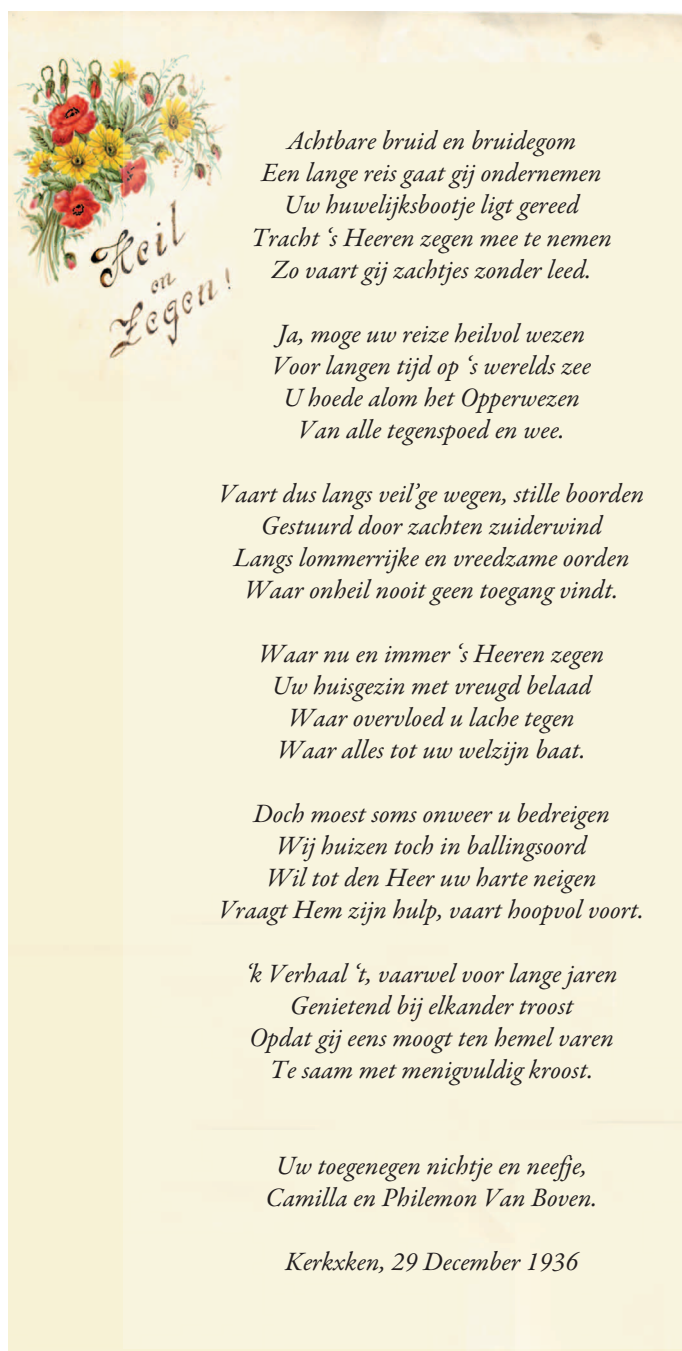 Heil
en
Zegen!
Achtbare bruid en bruidegom
Een lange reis gaat gij ondernemen
Uw huwelijksbootje ligt gereed
Tracht ‘s Heeren zegen mee te nemen
Zo vaart gij zachtjes zonder leed.

Ja, moge uw reize heilvol wezen
Voor langen tijd op ‘s werelds zee
U hoede alom het Opperwezen
Van alle tegenspoed en wee.

Vaart dus langs veil’ge wegen, stille boorden
Gestuurd door zachten zuiderwind
Langs lommerrijke en vreedzame oorden
Waar onheil nooit geen toegang vindt.

Waar nu en immer ‘s Heeren zegen
Uw huisgezin met vreugd belaad
Waar overvloed u lache tegen
Waar alles tot uw welzijn baat.

Doch moest soms onweer u bedreigen
Wij huizen toch in ballingsoord
Wil tot den Heer uw harte neigen
Vraagt Hem zijn hulp, vaart hoopvol voort.

‘k Verhaal ‘t, vaarwel voor lange jaren
Genietend bij elkander troost
Opdat gij eens moogt ten hemel varen
Te saam met menigvuldig kroost.

Uw toegenegen nichtje en neefje,
Camilla en Philemon Van Boven.

Kerkxken, 29 December 1936